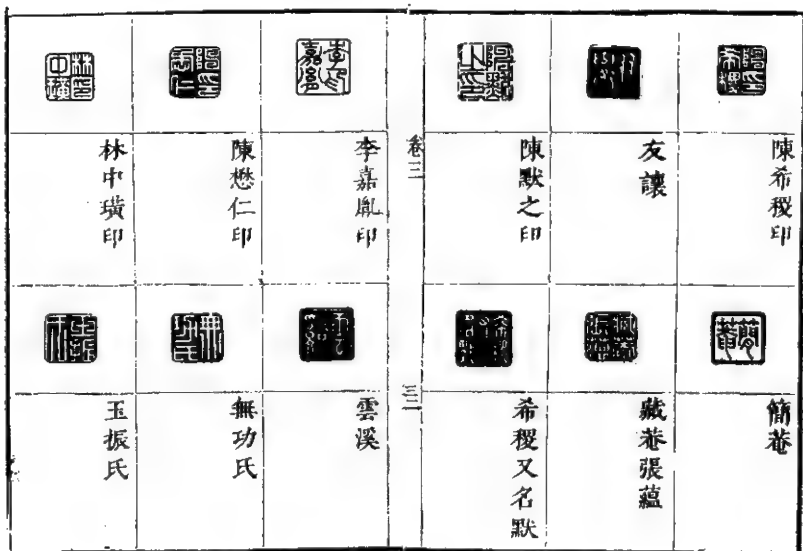 陳希稷印
友讓
陳默之印
簡菴
藏菴張蘊
希稷又名默
卷三
三
李嘉胤印
陳懋仁印
林中璜印
雲溪
無功氏
玉振氏